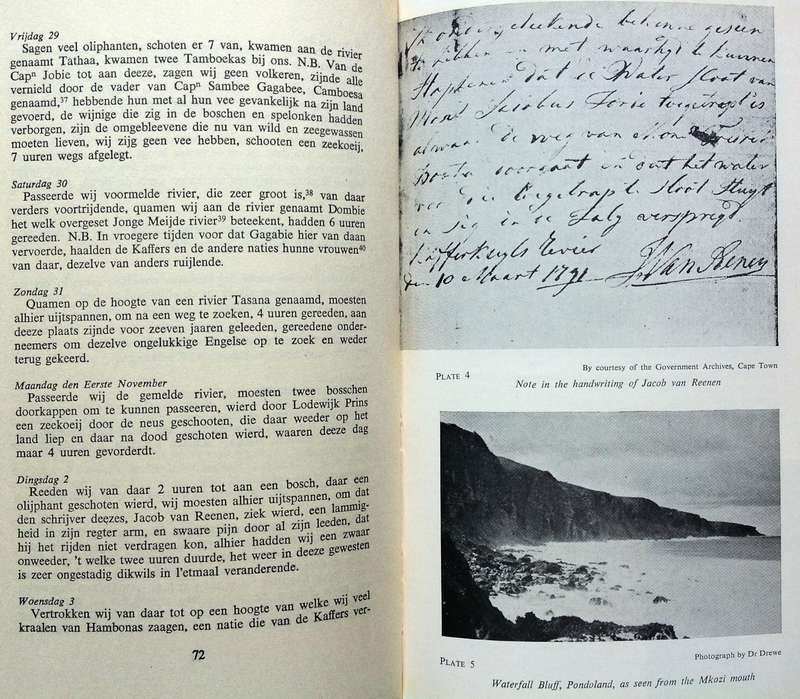 Vrijdag 29
Sagen veel oliphanten, schoten er 7 van, kwamen aan de rivier
genaamt Tathaa, kwamen twee Tamboekas bij ons. N.B. Van de
Capⁿ Jobie tot aan deeze, zagen wij geen volkeren, zijnde alle
vernield door de vader van Capⁿ Sambee Gagabee, Camboesa
genaamd,³⁷ hebbende hun met al hun vee gevankelijk na zijn land
gevoerd, de wijnige die zig in de boschen en spelonken hadden
verborgen, zijn de omgebleevene die nu van wild en zeegewassen
moeten lieven, wij zijg geen vee hebben, schooten een zeekoeij,
7 uuren wegs afgelegt.
Saturdag 30
Passeerde wij voormelde rivier, die zeer groot is,³⁸ van daar
verders voortrijdende, quamen wij aan de rivier genaamt Dombie
het welk overgeset Jonge Meijde rivier³⁹ beteekent, hadden 6 uuren
gereeden. N.B. In vroegere tijden voor dat Gagabie hier van daan
vervoerde, haalden de Kaffers en de andere naties hunne vrouwen⁴⁰
van daar, dezelve van anders ruijlende.
Zondag 31
Quamen op de hoogte van een rivier Tasana genaamd, moesten
alhier uijtspannen, om na een weg te zoeken, 4 uuren gereeden, aan
deeze plaats zijnde voor zeeven jaaren geleeden, gereedene onder-
neemers om dezelve ongelukkige Engelse op te zoek en weder
terug gekeerd.
Maandag den Eerste November
Passeerde wij de gemelde rivier, moesten twee bosschen
doorkappen om te kunnen passeeren, wierd door Lodewijk Prins
een zeekoeij door de neus geschooten, die daar weeder op het
land liep en daar na dood geschoten wierd, waaren deeze dag
maar 4 uuren gevorderdt.
Dingsdag 2
Reeden wij van daar 2 uuren tot aan een bosch, daar een
oliphant geschoten wierd, wij moesten alhier uijtspannen, om dat
den schrijver deezes, Jacob van Reenen, ziek wierd, een lammig-
heid in zijn regter arm, en swaare pijn door al zijn leeden, dat
hij het rijden niet verdragen kon, alhier hadden wij een zwaar
onweeder, 't welke twee uuren duurde, het weer in deeze gewesten
is zeer ongestadig dikwils in l'etmaal veranderende.
Woensdag 3
Vertrokken wij van daar tot op een hoogte van welke wij veel
kraalen van Hambonas zaagen, een natie die van de Kaffers ver-
72
ondergeteekende bekenne geseen
hebben en met waarhyt te kunnen
dat de Water sloot van
Mons Jacobus toegetrapt is
alwaar de weg van
voorgaat en dat het water
toegetrapte sloot
en sig in de verspregt
Rivier
den 10 Maart 1791 J Van Reenen
By courtesy of the Government Archives, Cape Town
PLATE 4
Note in the handwriting of Jacob van Reenen
Photograph by Dr Drewe
PLATE 5
Waterfall Bluff, Pondoland, as seen from the Mkozi mouth